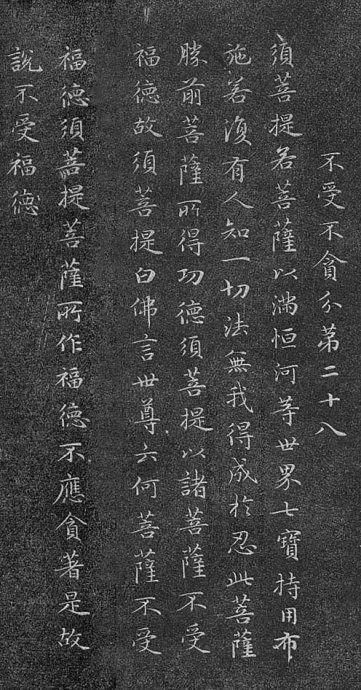 不受不貪分第二十八
須菩提若菩薩以滿恒河等世界七寶持用布
施若復有人知一切法無我得成於忍此菩薩
勝前菩薩所得功德須菩提以諸菩薩不受
福德故須菩提白佛言世尊云何菩薩不受
福德須菩提菩薩所作福德不應貪著是故
說不受福德